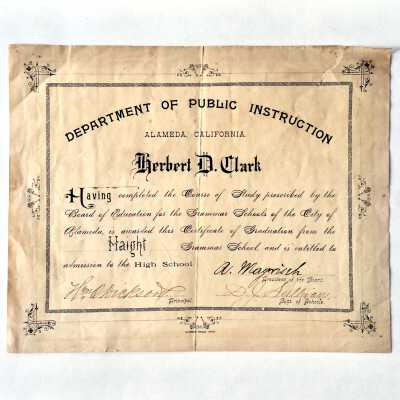 DEPARTMENT OF PUBLIC INSTRUCTION
ALAMEDA, CALIFORNIA.
Herbert D. Clark
Having completed the Course of Study prescribed by the
Board of Education for the Grammar Schools of the City of
Alameda, is awarded this Certificate of Graduation from the
Haight Grammar School and is entitled to
admission to the High School.
A. Magrisch
President of the Board.
Principal.
D. J. Sullivan
Supt. of Schools.